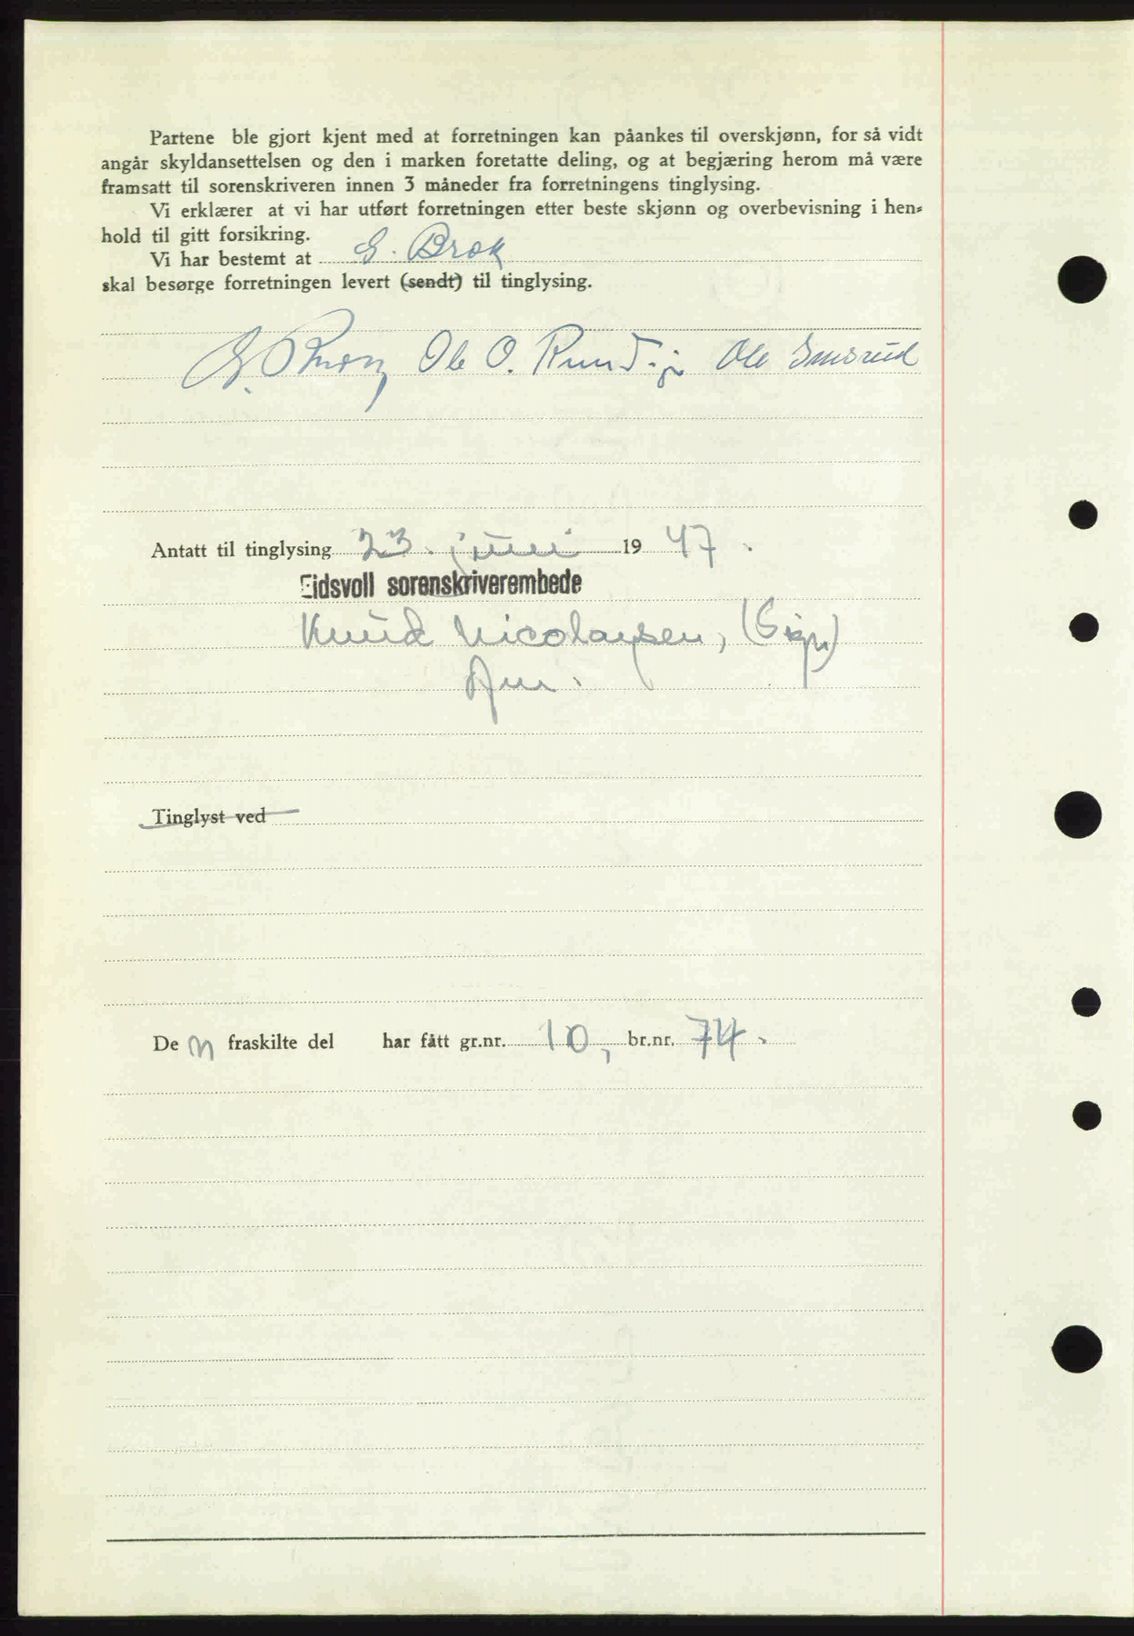 Partene ble gjort kjent med at forretningen kan påankes til overskjønn, for så vidt
angår skyldansettelsen og den i marken foretatte deling, og at begjæring herom må være
framsatt til sorenskriveren innen 3 måneder fra forretningens tinglysing.
Vi erklærer at vi har utført forretningen etter beste skjønn og overbevisning i hen-
hold til gitt forsikring.
Vi har bestemt at G. Brox
skal besørge forretningen levert (sendt) til tinglysing.
Ole O. Rund. jr Ole Smsrud
Antatt til tinglysing 23. juni 1947.
Eidsvoll sorenskriverembede
Knud Nicolaysen, (Sign)
Tinglyst ved
Den fraskilte del har fått gr.nr. 10, br.nr. 74.